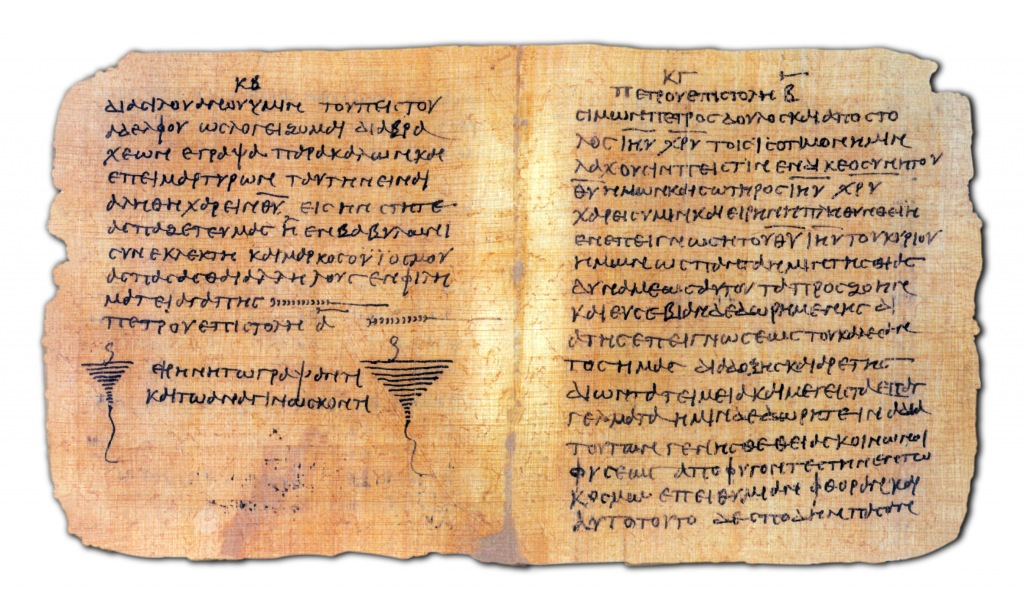 κβ
διασιλουανωυυμιν τουπειστου
αδελφου ωσλογειζομαι διαβρα
χεων εγραψα παρακαλωνκαι
επειμαρτυρων ταυτηνειναι
αληθη χαρεινθ̅υ̅ εισ ην στητε
ασπαζετευμασ η ενβαβυλωνι
συνεκλεκτη καιμαρκοσουϊοσμου
ασπασασθαιαλληλουσ ενφιλη
ματειαγαπησ
πετρουεπιστολη α̅
ειρηνητωγραψαντι
καιτωαναγινωσκοντι
κγ
πετρουεπιστολη β̅
σιμωνπετροσδουλοσκαιαποστο
λοσι̅η̅υ̅ χ̅ρ̅υ̅ τοισισοτιμονημιν
λαχουσινπειστιν ενδικεοσυνητου
θ̅υ̅ημωνκαισωτηροσι̅η̅υ̅ χ̅ρ̅υ̅
χαρεισυμινκαιειρηνηπληθυνθειη
ενεπειγνωσητουθ̅υ̅ ι̅η̅υ̅τουκυριου
ημωνωσπανταημιντησθιασ
δυναμεωσαυτου ταπροσζωην
καιευσεβιανδεδωρημενησ δι
ατησεπειγνωσεωστουκαλεσαν
τοσημασ διαδοξησκαιαρετησ
διωντατειμειακαιμεγισταεπαγ
γελματα ημινδεδωρητεινα δια
τουτωνγενησθεθειασκοινωνοι
φυσεωσ αποφυγοντεστηνεντω
κοσμω επειθυμιαν φθορανκαι
αυτοτουτο δεσπουδηνπασαν